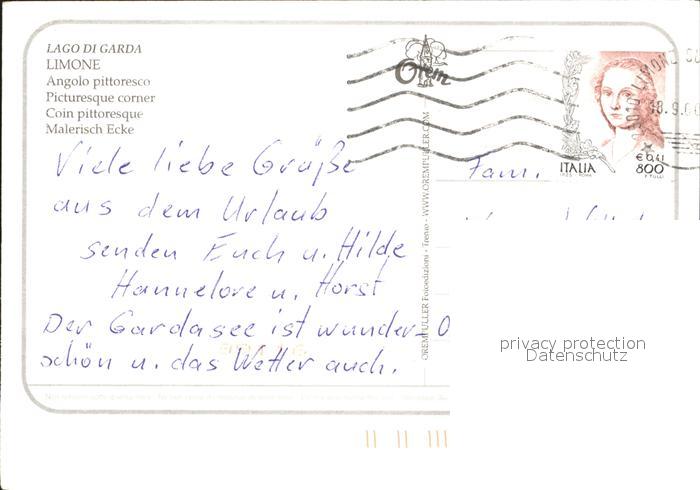 LAGO DI GARDA
LIMONE
Angolo pittoresco
Picturesque corner
Coin pittoresque
Malerisch Ecke
Viele liebe Grüße
aus dem Urlaub
senden Euch u. Hilde
Hannelore u. Horst
Der Gardasee ist wunder-
schön u. das Wetter auch.
Orem
OREMFULLER Fotoedizioni - Trento - WWW.OREMFULLER.COM
Fam.
ITALIA
€ 0,41
800
LIMONE
privacy protection
Datenschutz